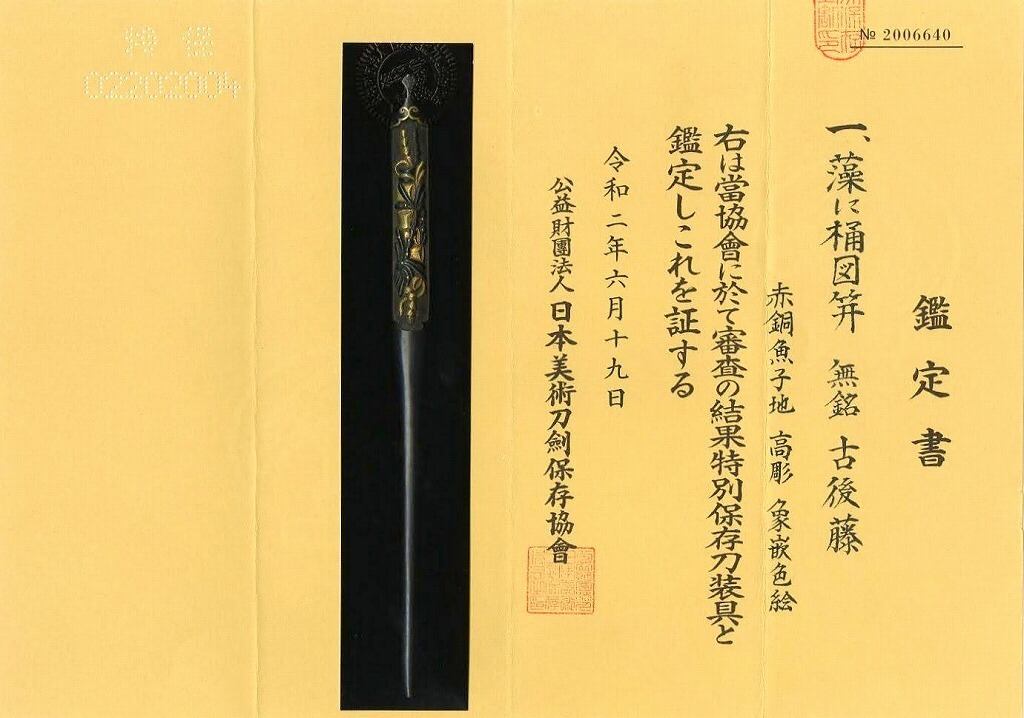 № 2006640
鑑定書
一、藻に桶図笄 無銘 古後藤
赤銅魚子地 高彫 象嵌色絵
右は當協會に於て審査の結果特別保存刀装具と
鑑定しこれを証する
令和二年六月十九日
公益財團法人 日本美術刀劍保存協會
02202004